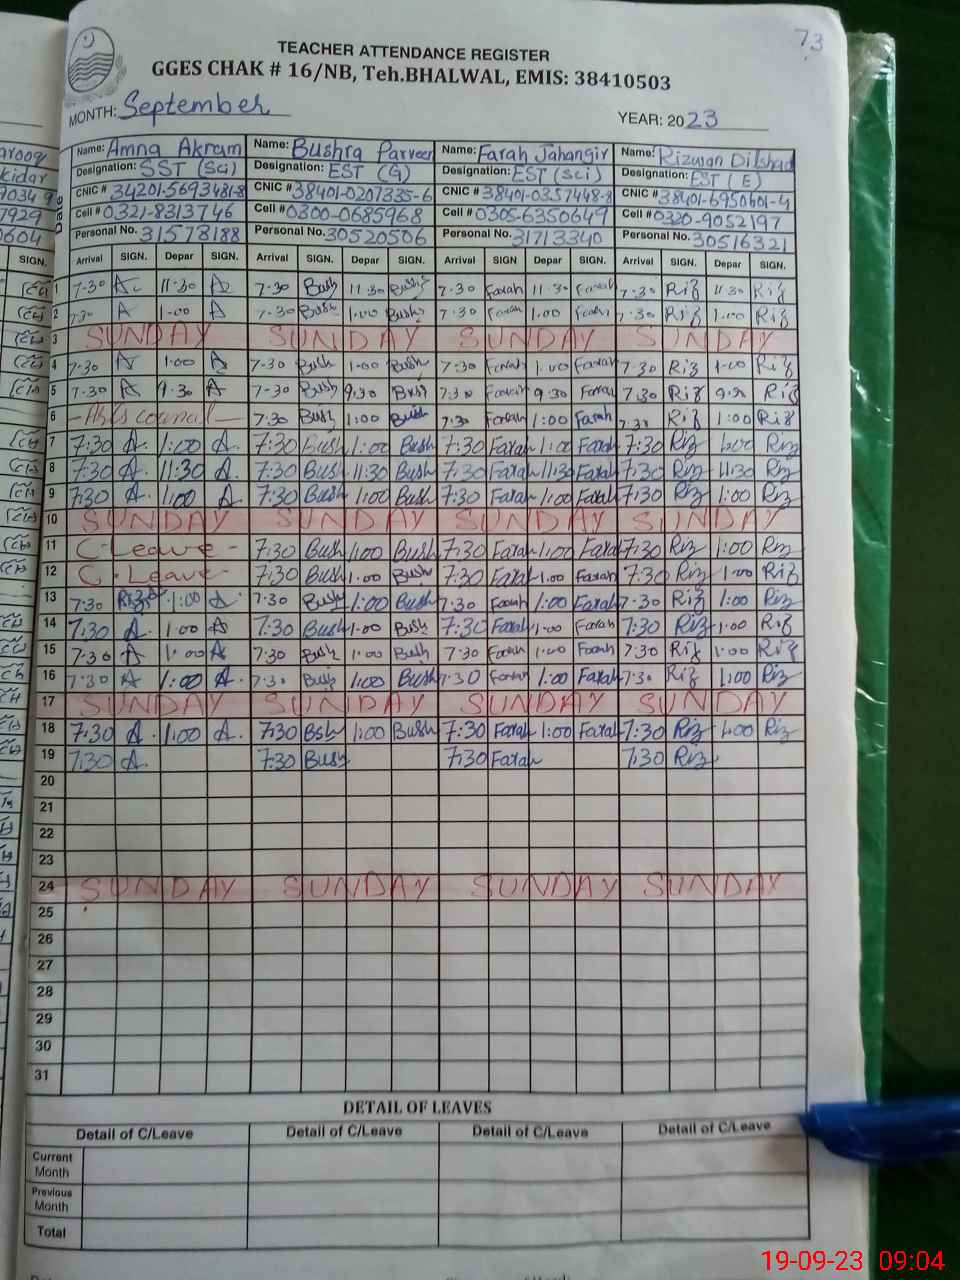 73
TEACHER ATTENDANCE REGISTER
GGES CHAK # 16/NB, Teh.BHALWAL, EMIS: 38410503
MONTH: September YEAR: 2023
Name: Amna Akram Name: Bushra Parveen Name: Farah Jahangir Name: Rizwan Dilshad
Designation: SST (Sci) Designation: EST (G) Designation: EST (Sci) Designation: EST (E)
CNIC # 34201-5693481-8 CNIC # 38401-0207335-6 CNIC # 38401-0357448-8 CNIC # 38401-6950601-4
Cell # 0321-8313746 Cell # 0300-0685968 Cell # 0305-6350649 Cell # 0320-9052197
Personal No. 31578188 Personal No. 30520506 Personal No. 31713340 Personal No. 30516321
Date Arrival SIGN. Depar SIGN. Arrival SIGN. Depar SIGN. Arrival SIGN. Depar SIGN. Arrival SIGN. Depar SIGN.
1 7-30 A 11-30 A 7-30 Bush 11-30 Bush 7-30 Farah 11-30 Farah 7-30 Riz 11-30 Riz
2 7-30 A 1-00 A 7-30 Bush 1-00 Bush 7-30 Farah 1-00 Farah 7-30 Riz 1-00 Riz
3 SUNDAY SUNDAY SUNDAY SUNDAY
4 7-30 A 1-00 A 7-30 Bush 1-00 Bush 7-30 Farah 1-00 Farah 7-30 Riz 1-00 Riz
5 7-30 A 9-30 A 7-30 Bush 9:30 Bush 7-30 Farah 9-30 Farah 7-30 Riz Riz
6 7:30 Bush 1:00 Bush 7:30 Farah 1:00 Farah 7-30 Riz 1:00 Riz
7 7:30 A. 1:00 A. 7:30 Bush 1:00 Bush 7:30 Farah 1:00 Farah 7:30 Riz 1:00 Riz
8 7:30 A. 11:30 A. 7:30 Bush 11:30 Bush 7:30 Farah 11:30 Farah 7:30 Riz 11:30 Riz
9 7:30 A. 1:00 A. 7:30 Bush 1:00 Bush 7:30 Farah 1:00 Farah 7:30 Riz 1:00 Riz
10 SUNDAY SUNDAY SUNDAY SUNDAY
11 C-Leave- 7:30 Bush 1:00 Bush 7:30 Farah 1:00 Farah 7:30 Riz 1:00 Riz
12 C.Leave- 7:30 Bush 1-00 Bush 7:30 Farah 1-00 Farah 7:30 Riz 1-00 Riz
13 7-30 1:00 A. 7-30 Bush 1:00 Bush 7-30 Farah 1:00 Farah 7-30 Riz 1:00 Riz
14 7:30 A. 1-00 A 7:30 Bush 1-00 Bush 7:30 Farah 1-00 Farah 7:30 Riz 1-00 Riz
15 7-30 A 1-00 A 7:30 Bush 1-00 Bush 7-30 Farah 1-00 Farah 7:30 Riz 1:00 Riz
16 7-30 A 1:00 A. 7-30 Bush 1:00 Bush 7-30 Farah 1:00 Farah 7-30 Riz 1:00 Riz
17 SUNDAY SUNDAY SUNDAY SUNDAY
18 7:30 A. 1:00 A. 7:30 Bsh 1:00 Bush 7:30 Farah 1:00 Farah 7:30 Riz 1:00 Riz
19 7:30 A. 7:30 Bush 7:30 Farah 7:30 Riz
20
21
22
23
24 SUNDAY SUNDAY SUNDAY SUNDAY
25
26
27
28
29
30
31
DETAIL OF LEAVES
Detail of C/Leave Detail of C/Leave Detail of C/Leave Detail of C/Leave
Current Month
Previous Month
Total
19-09-23 09:04